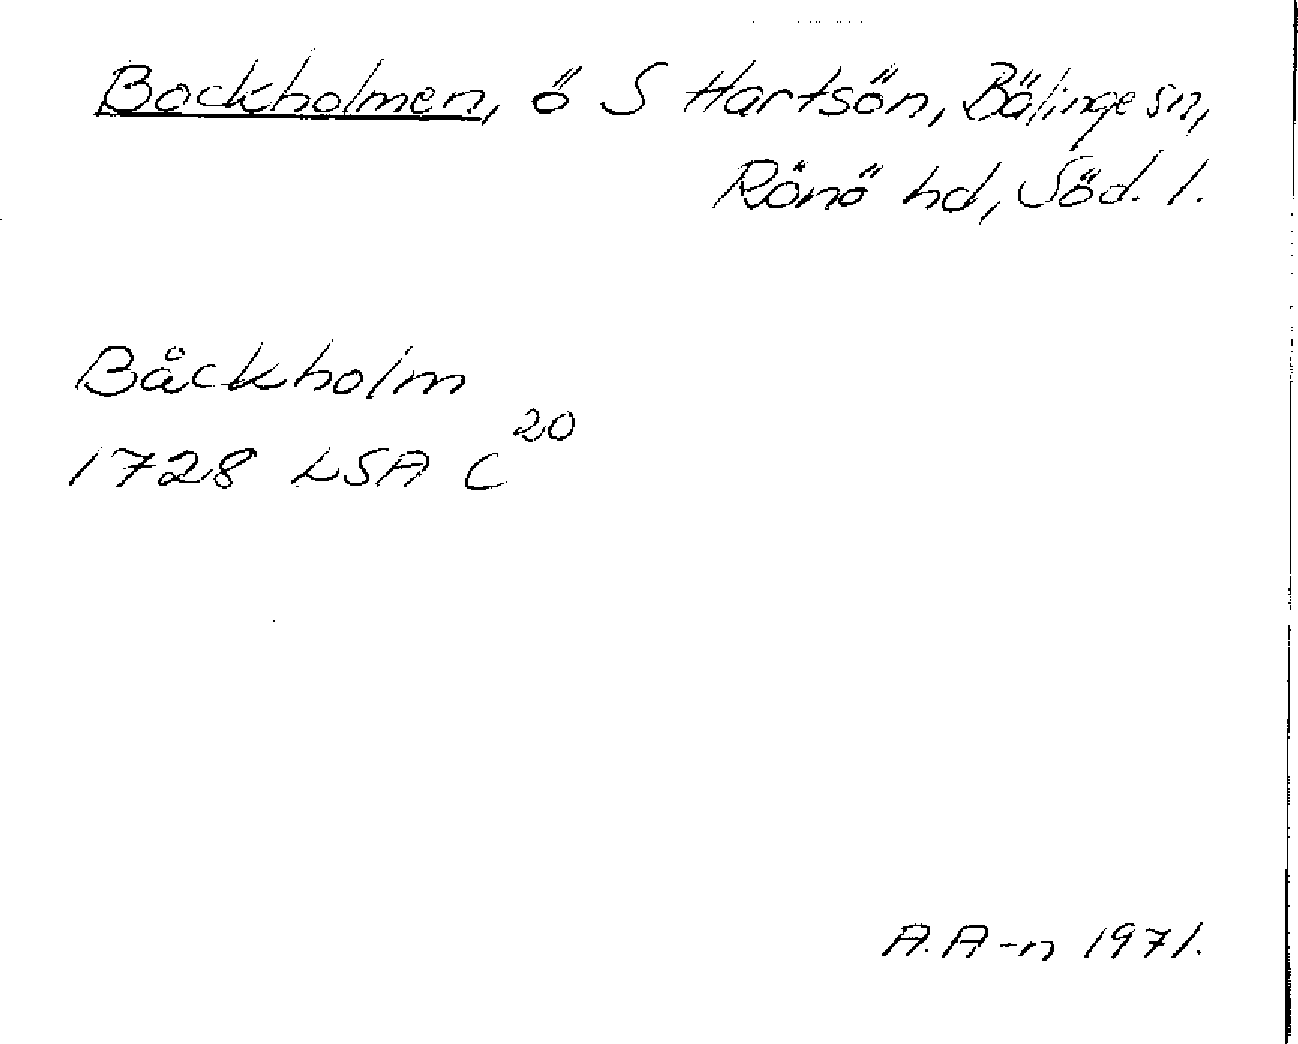 Bockholmen, ö S Hartsön, Bälinge sn,
Rönö hd, Söd. l.
Båckholm
1728 LSA C 20
A. A-n 1971.